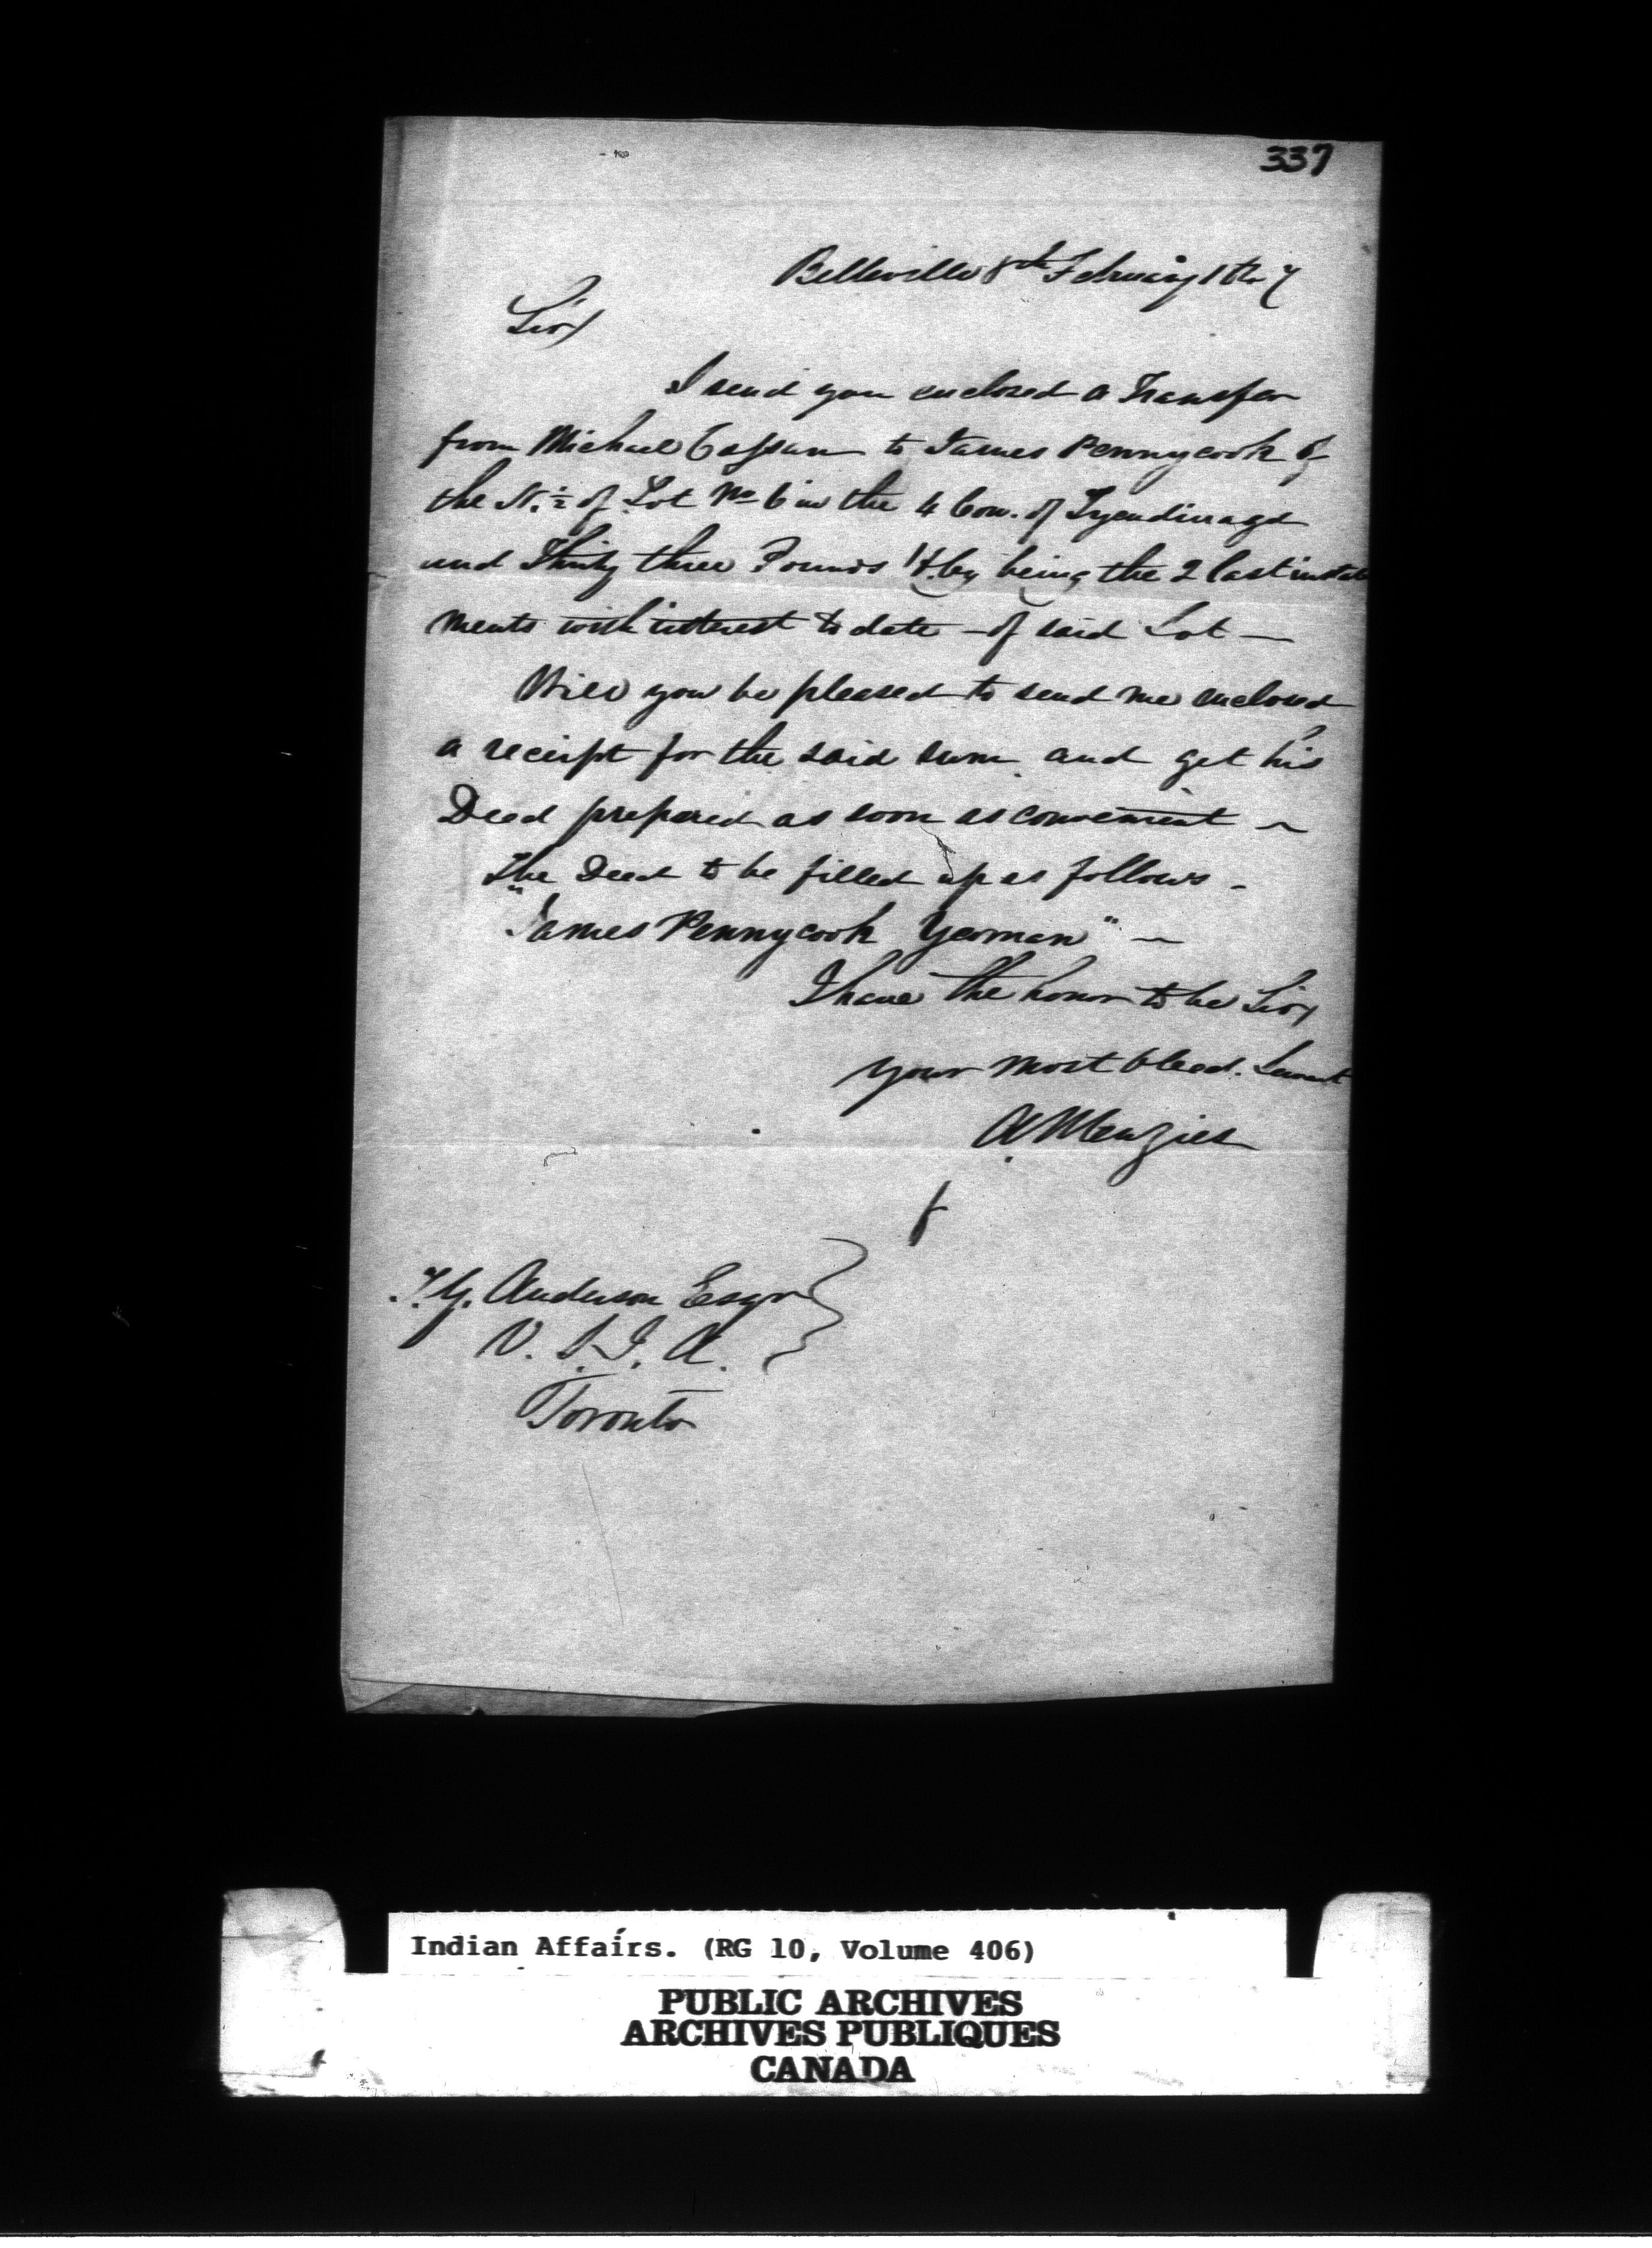 337
Belleville 8th February 1847
Sir/
I send you enclosed a Transfer
from Michael Cassan to James Pennycook of
the N. ½ of Lot No 6 in the 4 Con. of Tyendinaga
and Thirty three Pounds being the 2 last instal
ments with interest to date - of said Lot —
Will you be pleased to send me enclosed
a receipt for the said sum and get his
Deed prepared as soon as convenient ~
The Deed to be filled up as follows -
"James Pennycook Yeoman" ~
I have the honor to be Sir/
your most Obed. Servant
A Menzies
T.G. Anderson Esqr
V. S. I. A.
Toronto
Indian Affairs. (RG 10, Volume 406)
PUBLIC ARCHIVES
ARCHIVES PUBLIQUES
CANADA